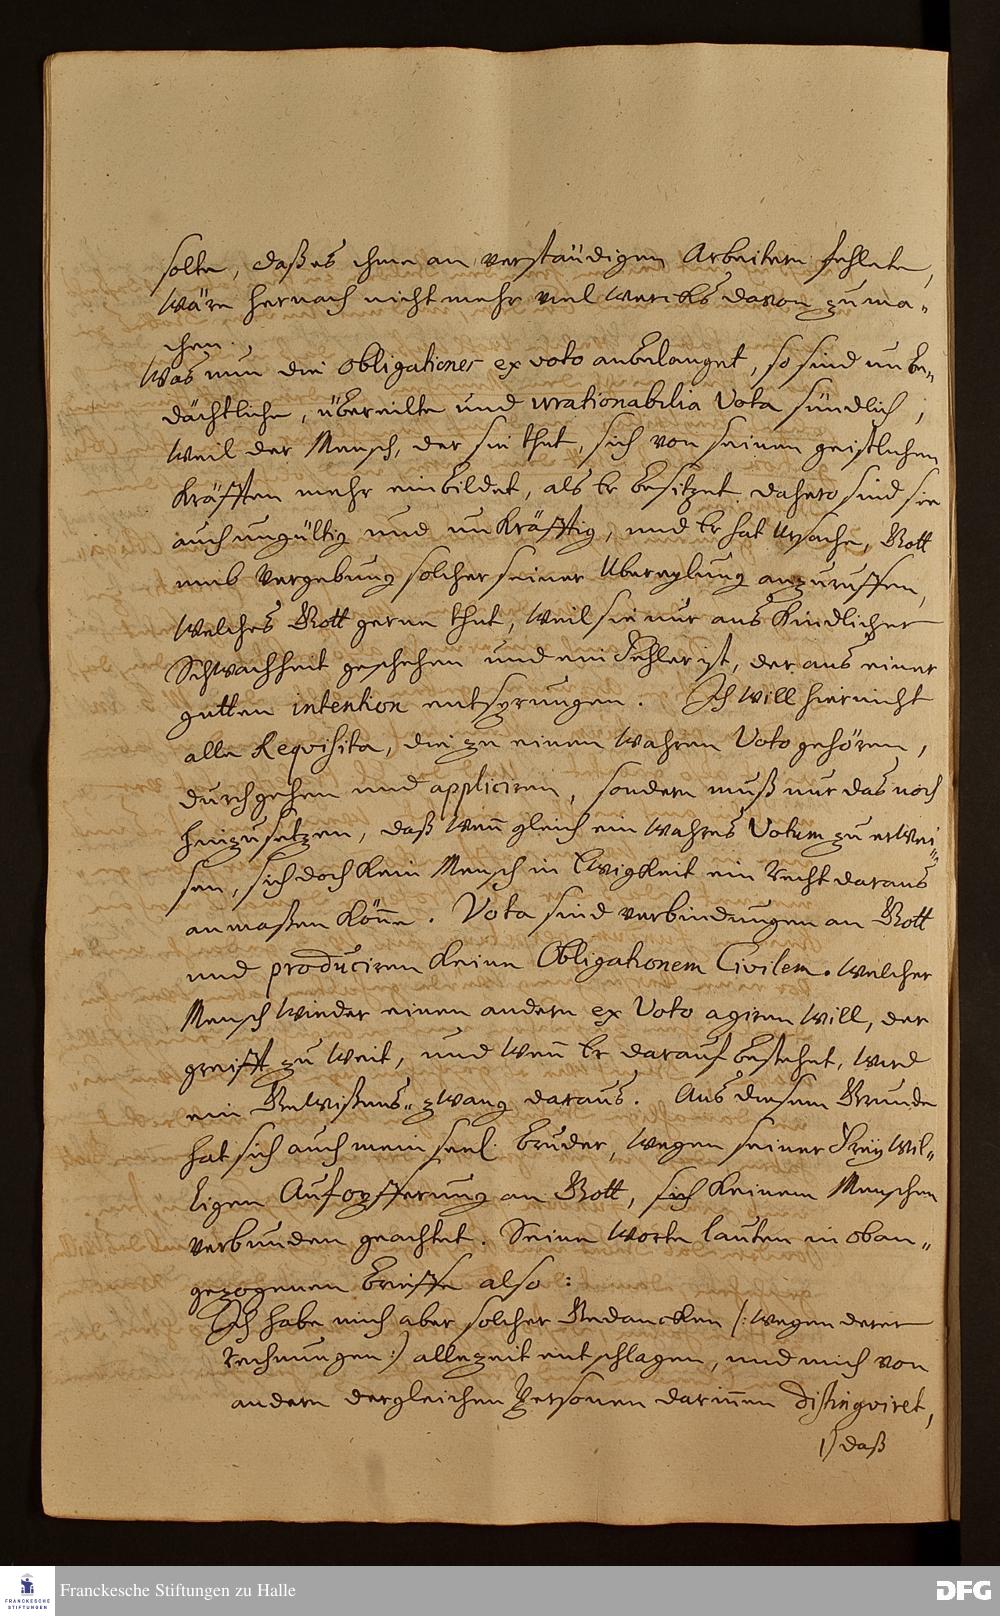 solte, daß es ihme an verständigen Arbeitern fehlete,
wäre hernach nicht mehr viel wercks davon zu ma-
chen.
Was nun die obligationes ex voto anbelanget, so sind unbe-
dächtliche, übereilte und irrationabilia Vota sündlich;
weil der Mensch, der sie thut, sich von seinen geistlichen
Kräfften mehr einbildet, als Er besitzet. dahero sind sie
auch ungültig und unkräfftig, und Er hat Ursache, Gott
umb Vergebung solcher seiner Ubereylung anzuruffen,
welches Gott gerne thut, weil sie nur aus Kindlicher
Schwachheit geschehen und ein Fehler ist, der aus einer
gutten intention entsprungen. Ich will hier nicht
alle Requisita, die zu einem wahren Voto gehören,
durchgehen und appliciren, sondern muß nur das noch
hinzusetzen, daß wenn gleich ein wahres Votum zu erwei-
sen, sich doch kein Mensch in Ewigkeit ein Recht daraus
anmaßen könne. Vota sind verbindungen an Gott
und produciren keine Obligationem Civilem. welcher
Mensch wieder einen andern ex Voto agiren will, der
greifft zu weit, und wenn Er darauf bestehet, wird
ein Gewißens-zwang daraus. Aus diesem Grunde
hat sich auch mein seel. Bruder, wegen seiner Freywil-
ligen Aufopfferung an Gott, sich keinem Menschen
verbunden geachtet. Seine Worte lauten in oban-
gezogenen Brieffe also:
Ich habe mich aber solcher Gedancken (: wegen derer
Rechnungen :) allezeit entschlagen, und mich von
andern dergleichen Personen darinnen distingviret,
1) daß
Franckesche Stiftungen zu Halle
FRANCKESCHE
STIFTUNGEN
DFG